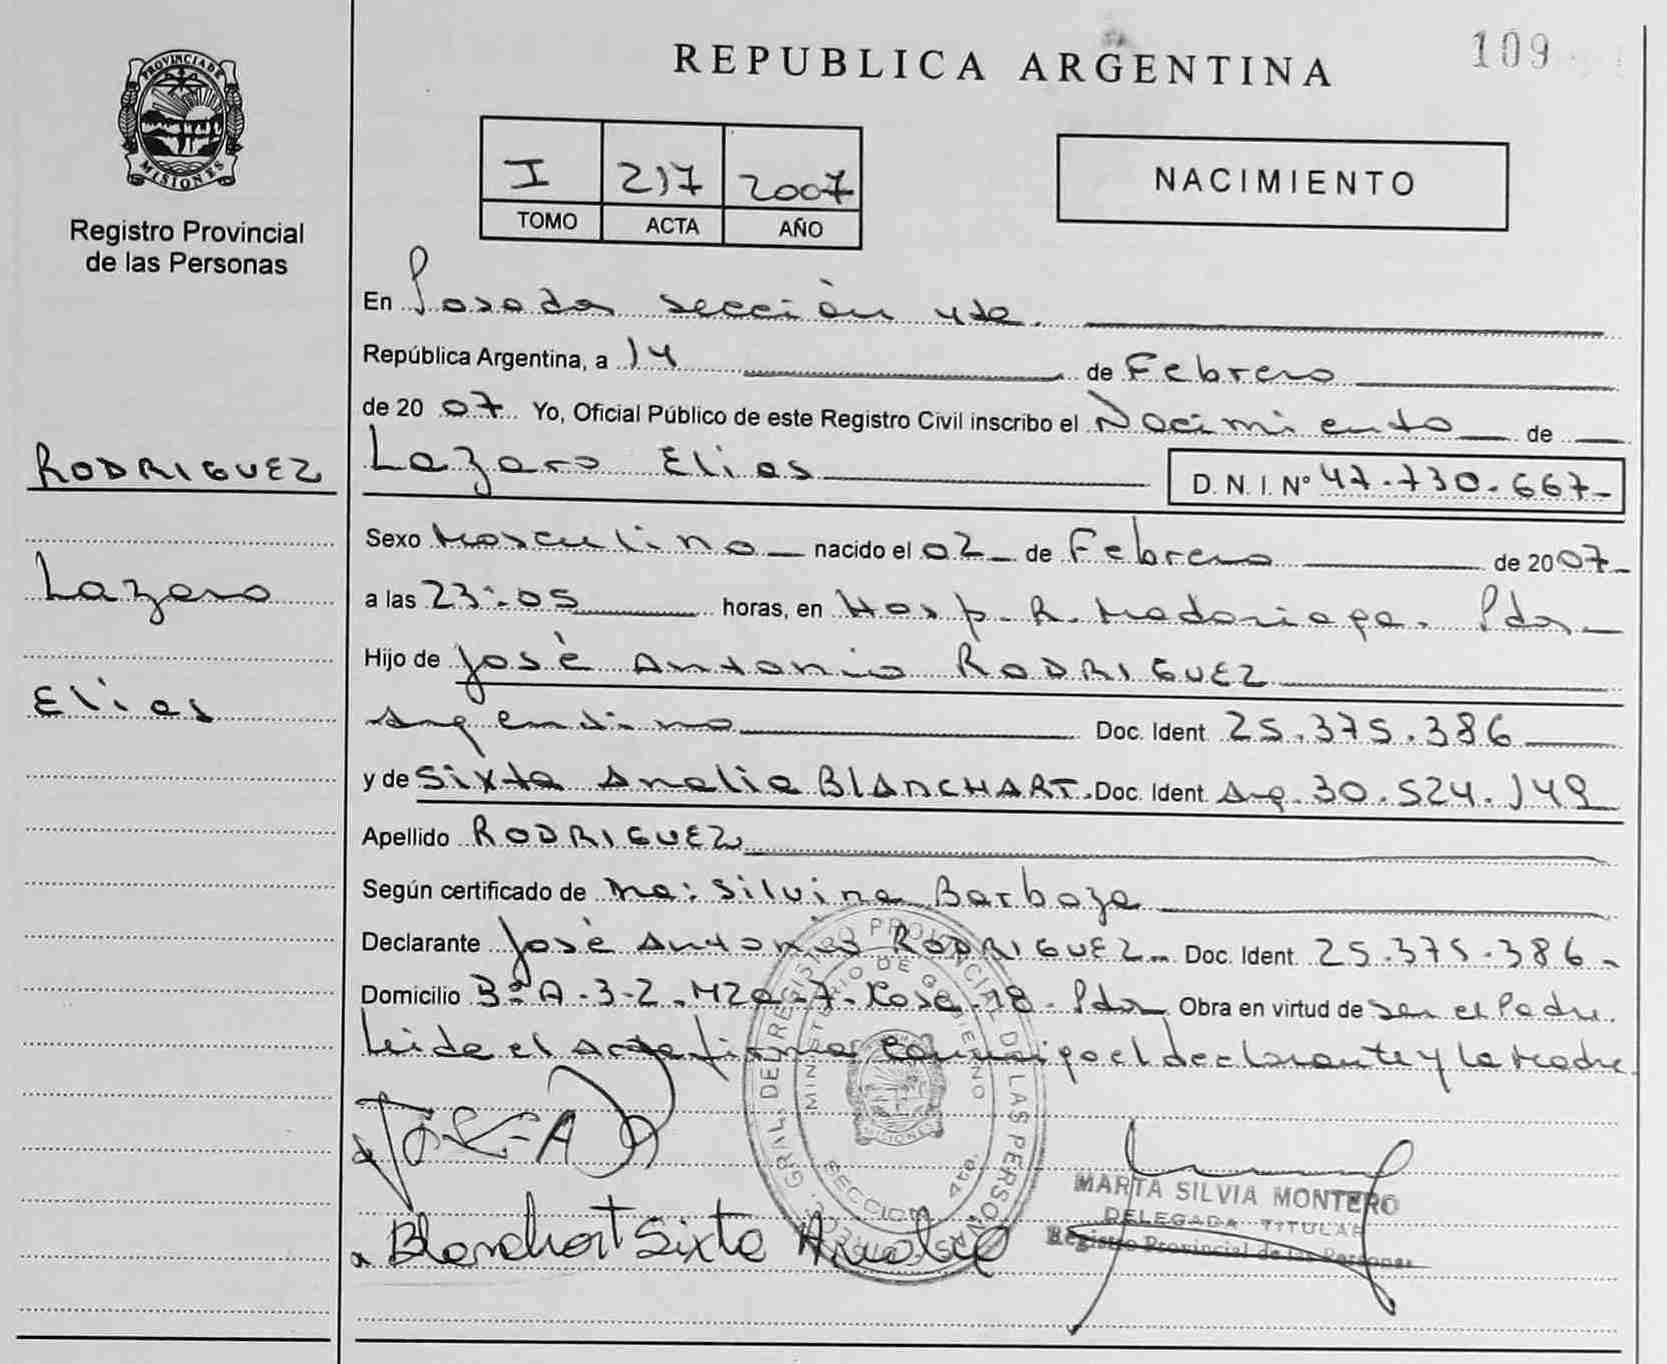 REPUBLICA ARGENTINA
109
PROVINCIA DE
MISIONES
Registro Provincial
de las Personas
I 217 2007
TOMO ACTA AÑO
NACIMIENTO
En Posadas sección 4ta.
República Argentina, a 14 de Febrero
de 2007 Yo, Oficial Público de este Registro Civil inscribo el Nacimiento de
RODRIGUEZ
Lazaro Elias D.N.I. N° 47.730.667-
Sexo Masculino nacido el 02 de Febrero de 2007
Lazaro
a las 23:05 horas, en Hosp. R. Madariaga. Pdas
Hijo de José Antonio RODRIGUEZ
Elias
Argentino Doc. Ident. 25.375.386
y de Sixta Analia BLANCHART. Doc. Ident. Arg. 30.524.149
Apellido RODRIGUEZ
Según certificado de Ma: Silvina Barboza
Declarante José Antonio RODRIGUEZ Doc. Ident. 25.375.386
Domicilio B° A-3-2. Mza-7-Kasa-18-Pdas Obra en virtud de ser el Padre
Leida el Acta firman conmigo el declarante y la Madre.
DIREC. GRAL. DE REGISTRO PROVINCIAL DE LAS PERSONAS
MINISTERIO DE GOBIERNO
MISIONES
SECCION 4ta.
MARTA SILVIA MONTERO
DELEGADA TITULAR
Registro Provincial de las Personas
Blanchart Sixta Analia